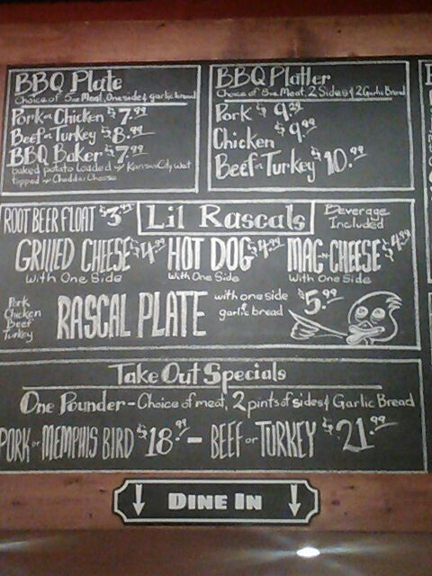 BBQ Plate
Choice of 5oz Meat, One side & garlic bread
Pork or Chicken $7.99
Beef or Turkey $8.99
BBQ Baker $7.99
baked potato loaded w/ Kansas City Wet
topped w/ Cheddar Cheese
BBQ Platter
Choice of 8oz Meat, 2 Sides & 2 Garlic Bread
Pork $9.29
Chicken $9.99
Beef or Turkey $10.99
ROOT BEER FLOAT $3
Lil Rascals
Beverage
Included
GRILLED CHEESE $4.99
With One Side
HOT DOG $4.99
With One Side
MAC-N-CHEESE $4.99
With One Side
Pork
Chicken
Beef
Turkey
RASCAL PLATE
with one side
garlic bread
$5.99
Take Out Specials
One Pounder - Choice of meat, 2 pints of sides & Garlic Bread
PORK or MEMPHIS BIRD $18.99 - BEEF or TURKEY $21.99
DINE IN